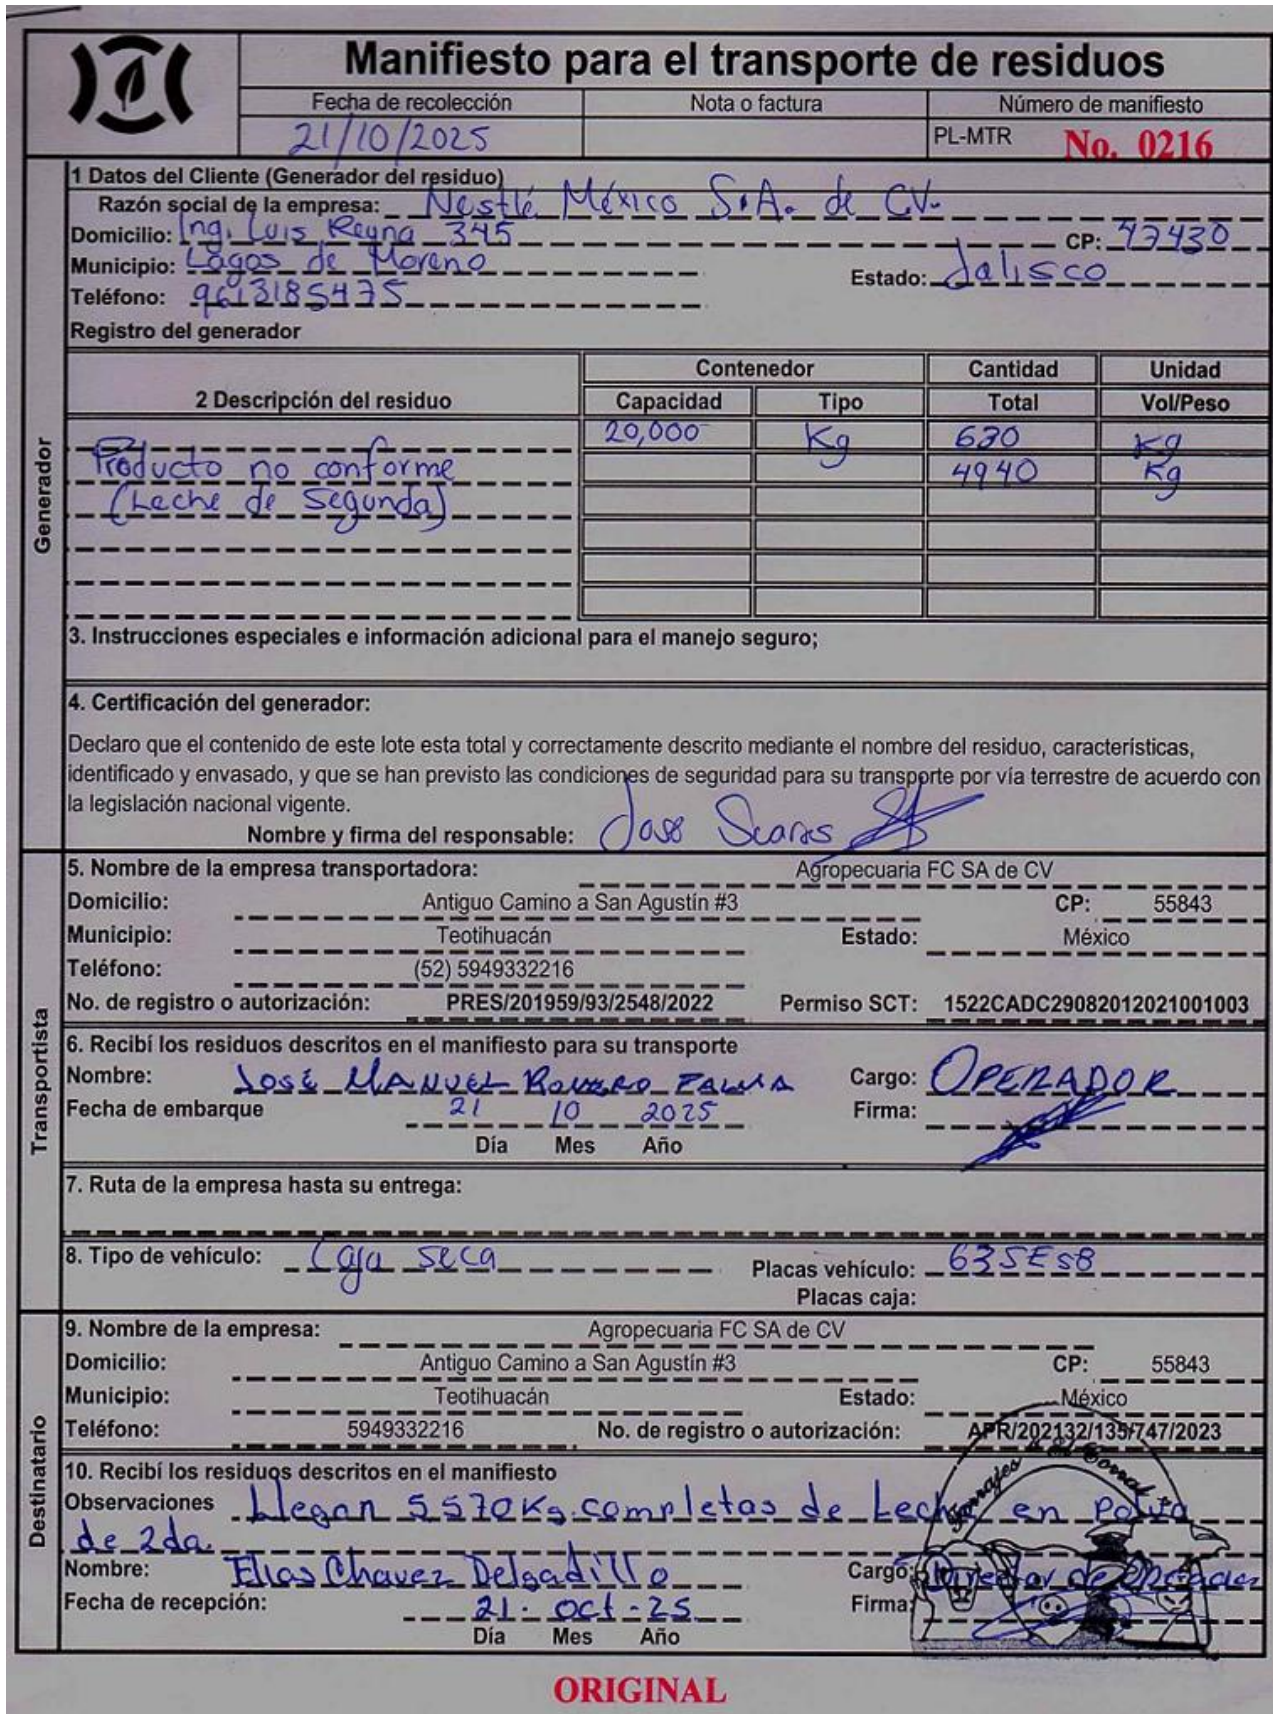 Manifiesto para el transporte de residuos
Fecha de recolección Nota o factura Número de manifiesto
21/10/2025 PL-MTR No. 0216
1 Datos del Cliente (Generador del residuo)
Razón social de la empresa: Nestlé México S.A. de CV.
Domicilio: Ing. Luis Reyna 345 CP: 47430
Municipio: Lagos de Moreno Estado: Jalisco
Teléfono: 9613185475
Registro del generador
Contenedor Cantidad Unidad
2 Descripción del residuo Capacidad Tipo Total Vol/Peso
20,000 Kg 630 Kg
Producto no conforme 4940 Kg
(Leche de Segunda)
Generador
3. Instrucciones especiales e información adicional para el manejo seguro;
4. Certificación del generador:
Declaro que el contenido de este lote esta total y correctamente descrito mediante el nombre del residuo, características,
identificado y envasado, y que se han previsto las condiciones de seguridad para su transporte por vía terrestre de acuerdo con
la legislación nacional vigente.
Nombre y firma del responsable: José
5. Nombre de la empresa transportadora: Agropecuaria FC SA de CV
Domicilio: Antiguo Camino a San Agustín #3 CP: 55843
Municipio: Teotihuacán Estado: México
Teléfono: (52) 5949332216
No. de registro o autorización: PRES/201959/93/2548/2022 Permiso SCT: 1522CADC29082012021001003
Transportista
6. Recibí los residuos descritos en el manifiesto para su transporte
Nombre: José MANUEL ROMERO PALMA Cargo: OPERADOR
Fecha de embarque 21 10 2025 Firma:
Día Mes Año
7. Ruta de la empresa hasta su entrega:
8. Tipo de vehículo: Caja seca Placas vehículo: 635ES8
Placas caja:
9. Nombre de la empresa: Agropecuaria FC SA de CV
Domicilio: Antiguo Camino a San Agustín #3 CP: 55843
Municipio: Teotihuacán Estado: México
Teléfono: 5949332216 No. de registro o autorización: APR/202132/135/747/2023
Destinatario
10. Recibí los residuos descritos en el manifiesto
Observaciones Llegan 5570Kg completas de Leche en Polvo
de 2da.
Nombre: Elias Chavez Delgadillo Cargo: Director de
Fecha de recepción: 21 - oct - 25 Firma:
Día Mes Año
Forrajes El Corral
ORIGINAL